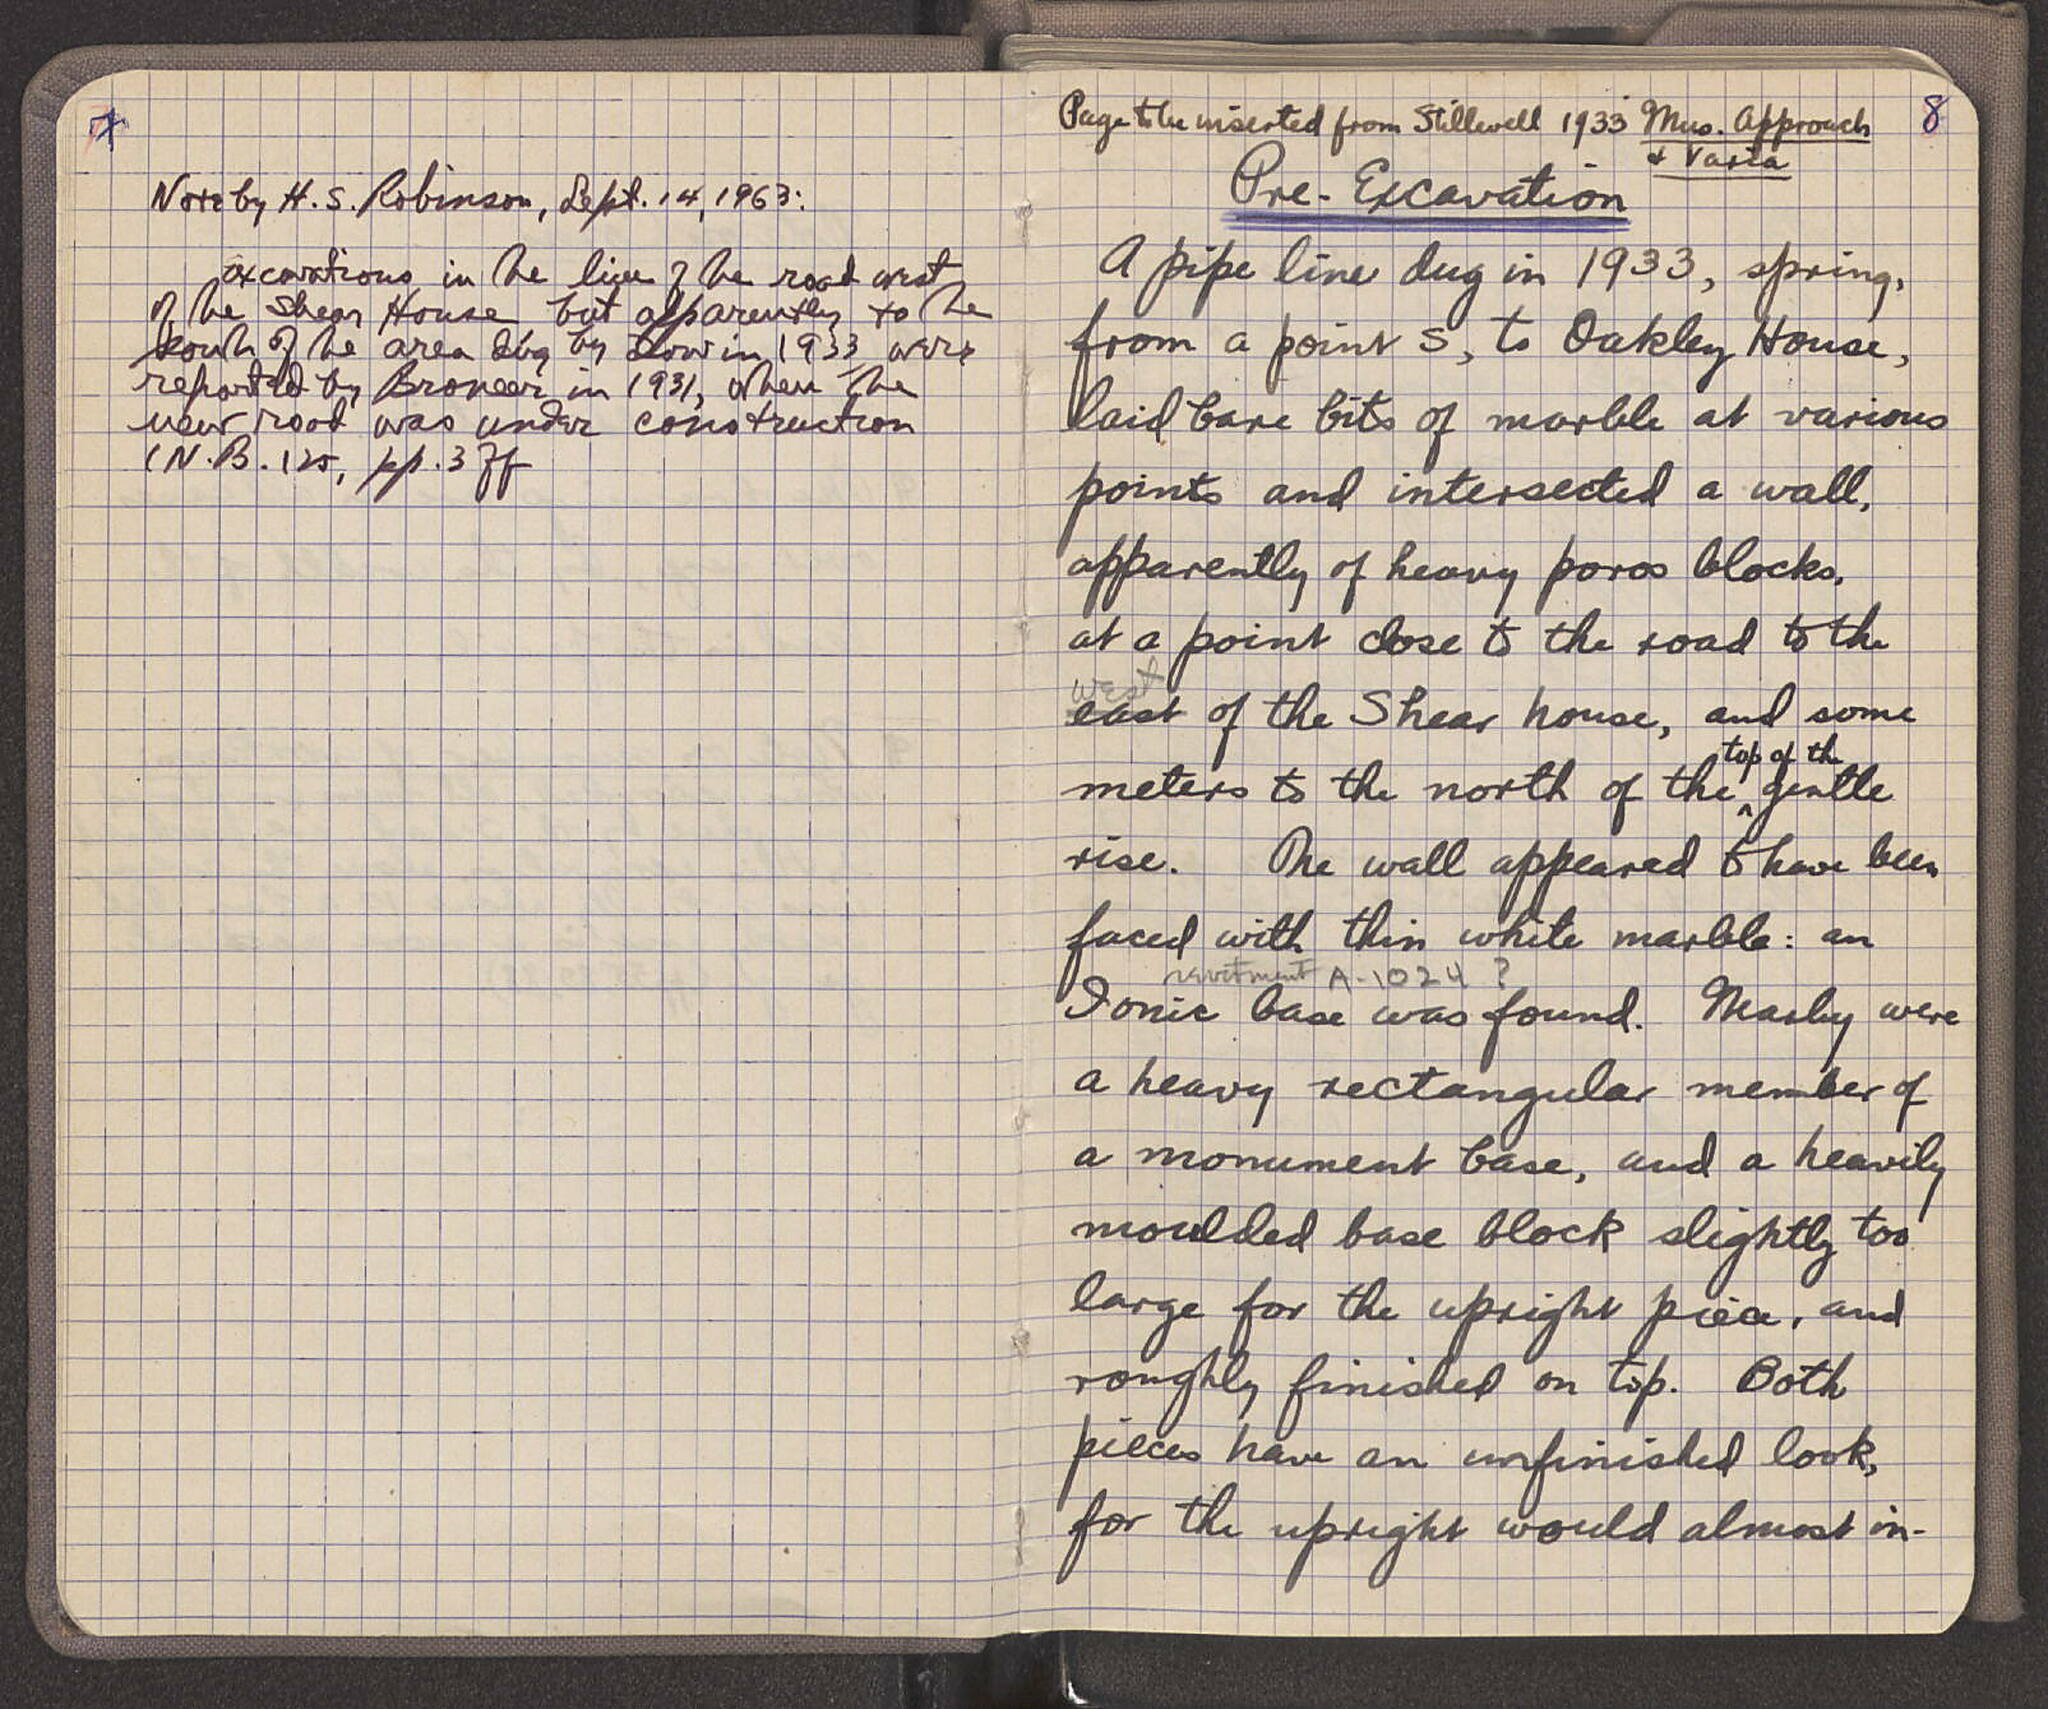 7
Note by H. S. Robinson, Sept. 14, 1963:
excavations in the line of the road west
of the Shear House but apparently to the
south of the area dug by Dow in 1933 were
reported by Broneer in 1931, when the
new road was under construction
(N.B. 125, pp. 3 ff
Page to be inserted from Stillwell 1933 Mus. Approach
& Varia
8
Pre-Excavation
A pipe line dug in 1933, spring,
from a point S, to Oakley House,
laid bare bits of marble at various
points and intersected a wall,
apparently of heavy poros blocks,
at a point close to the road to the
west
east of the Shear house, and some
top of the
meters to the north of the ^ gentle
rise. The wall appeared to have been
faced with thin white marble: an
revetment A-1024 ?
Ionic base was found. Nearby were
a heavy rectangular member of
a monument base, and a heavily
moulded base block slightly too
large for the upright piece, and
roughly finished on top. Both
pieces have an unfinished look,
for the upright would almost in-